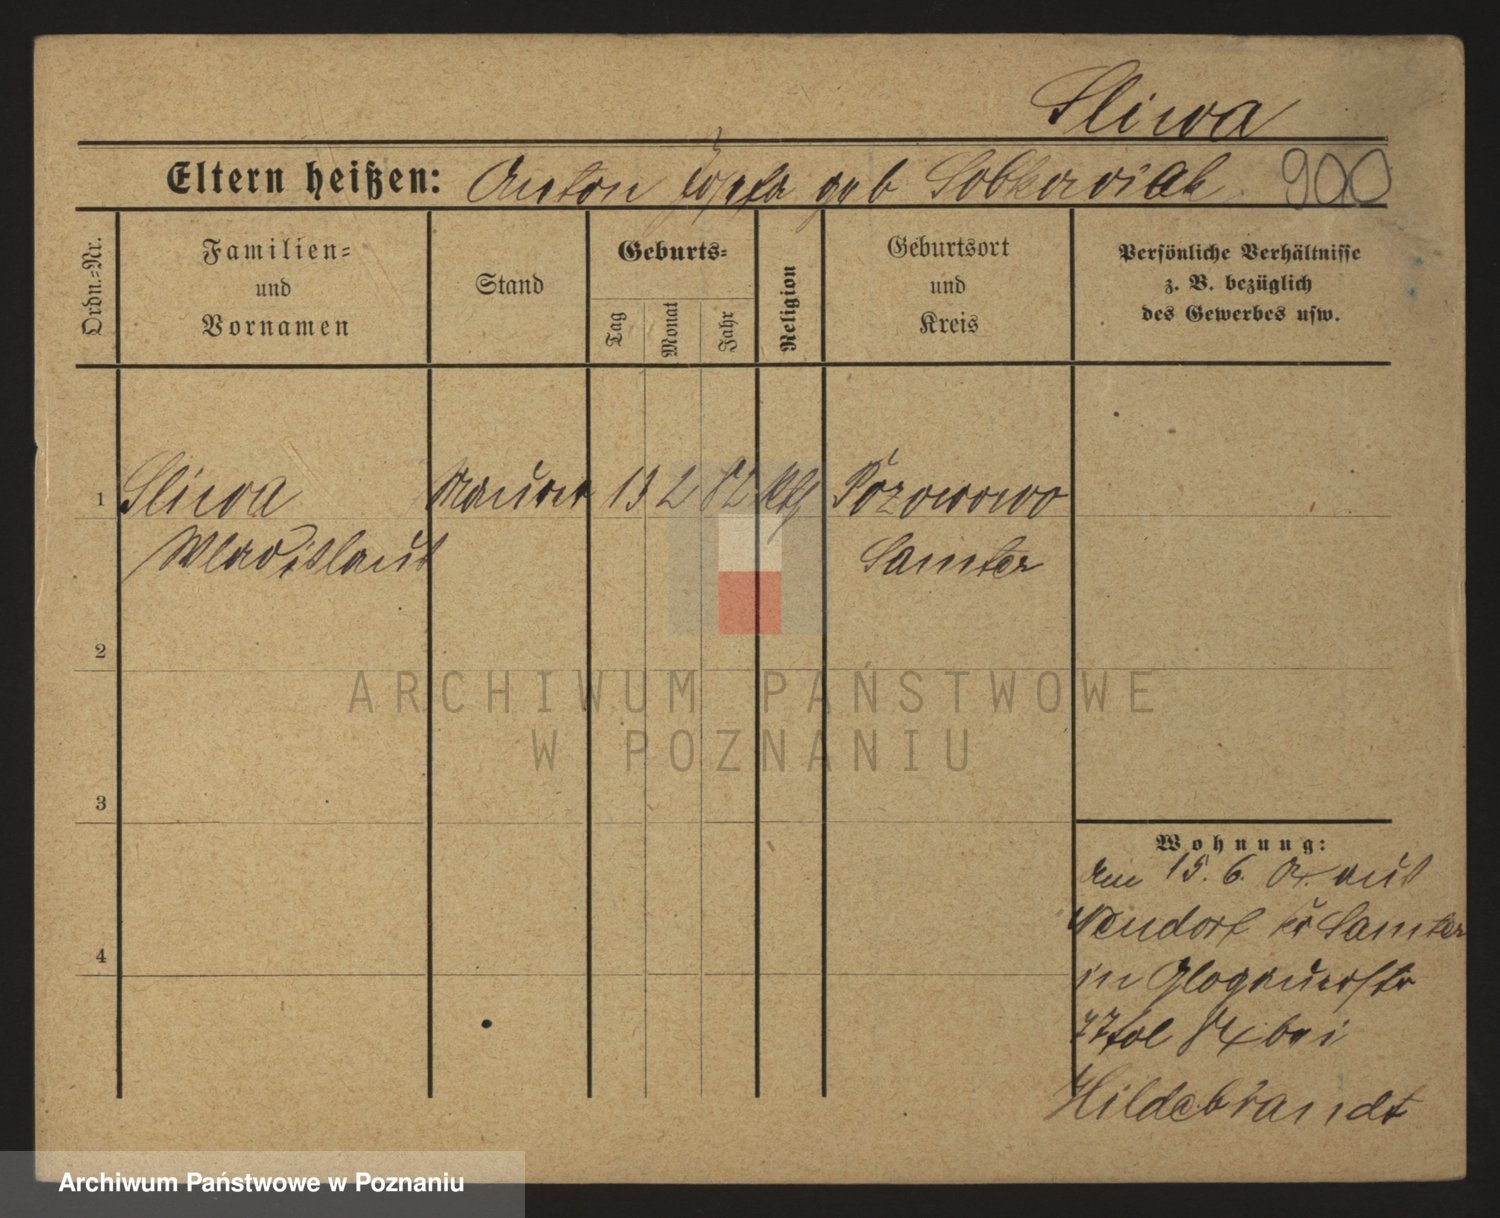 Sliwa
Eltern heißen: Anton Josefa geb Sobkowiak 900
Ordn.-Nr.
Familien-
und
Vornamen
Stand
Geburts-
Tag
Monat
Jahr
Religion
Geburtsort
und
Kreis
Persönliche Verhältnisse
z. B. bezüglich
des Gewerbes usw.
1 Sliwa Maurer 13 2 82 Kth
Wladislaus Samter
2
ARCHIWUM PAŃSTWOWE
W POZNANIU
3
Wohnung:
Am 15. 6. aus
4 Neudorf Kr Samter
in Glogauerstr
bei
Hildebrandt
Archiwum Państwowe w Poznaniu